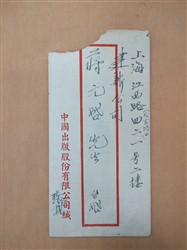 上海江西路四二一号二楼
建新公司
蒋元啓先生
中國出版股份有限公司緘